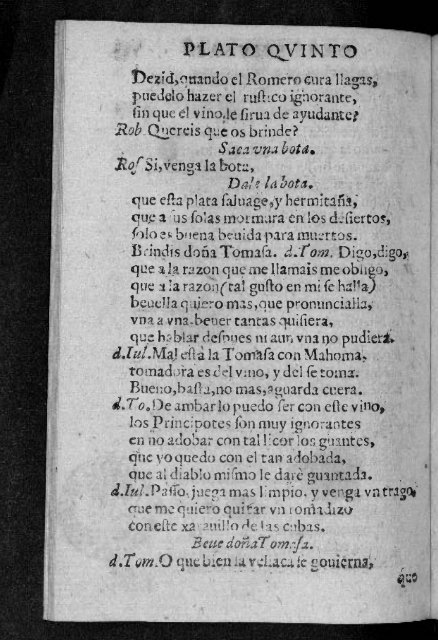 PLATO QVINTO
Dezid, quando el Romero cura llagas,
puedelo hazer el rustico ignorante,
sin que el vino, le sirua de ayudante?
Rob. Quereis que os brinde?
Saca vna bota.
Ros. Si, venga la bota,
Dale la bota.
que esta plata saluage, y hermitaña,
que a sus solas mormura en los desiertos,
solo es buena beuida para muertos.
Brindis doña Tomasa. d.Tom. Digo, digo,
que a la razon que me llamais me obligo,
que a la razon (tal gusto en mi se halla)
beuella quiero mas, que pronuncialla,
vna a vna beuer tantas quisiera,
que hablar despues ni aun vna no pudiera.
d.Iul. Mal està la Tomasa con Mahoma,
tomadora es del vino, y del se toma.
Bueno, basta, no mas, aguarda cuera.
d.To. De ambar lo puedo ser con este vino,
los Principotes son muy ignorantes
en no adobar con tal licor los guantes,
que yo quedo con el tan adobada,
que al diablo mismo le darè guantada.
d.Iul. Passo, juega mas limpio, y venga vn trago,
que me quiero quitar vn romadizo
con este de las cubas.
Beue doña Tomasa.
d.Tom. O que bien la vellaca se gouierna,
que